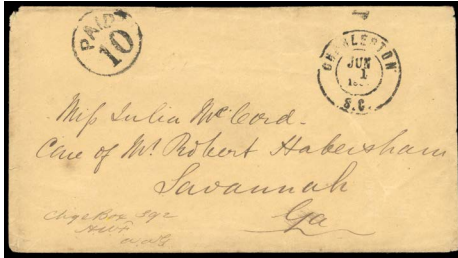 PAID
10
CHARLESTON
JUN
1
S.C.
Miſs Julia McCord.
Care of Mr. Robert Habersham
Savannah
Ga
Chge Box 592